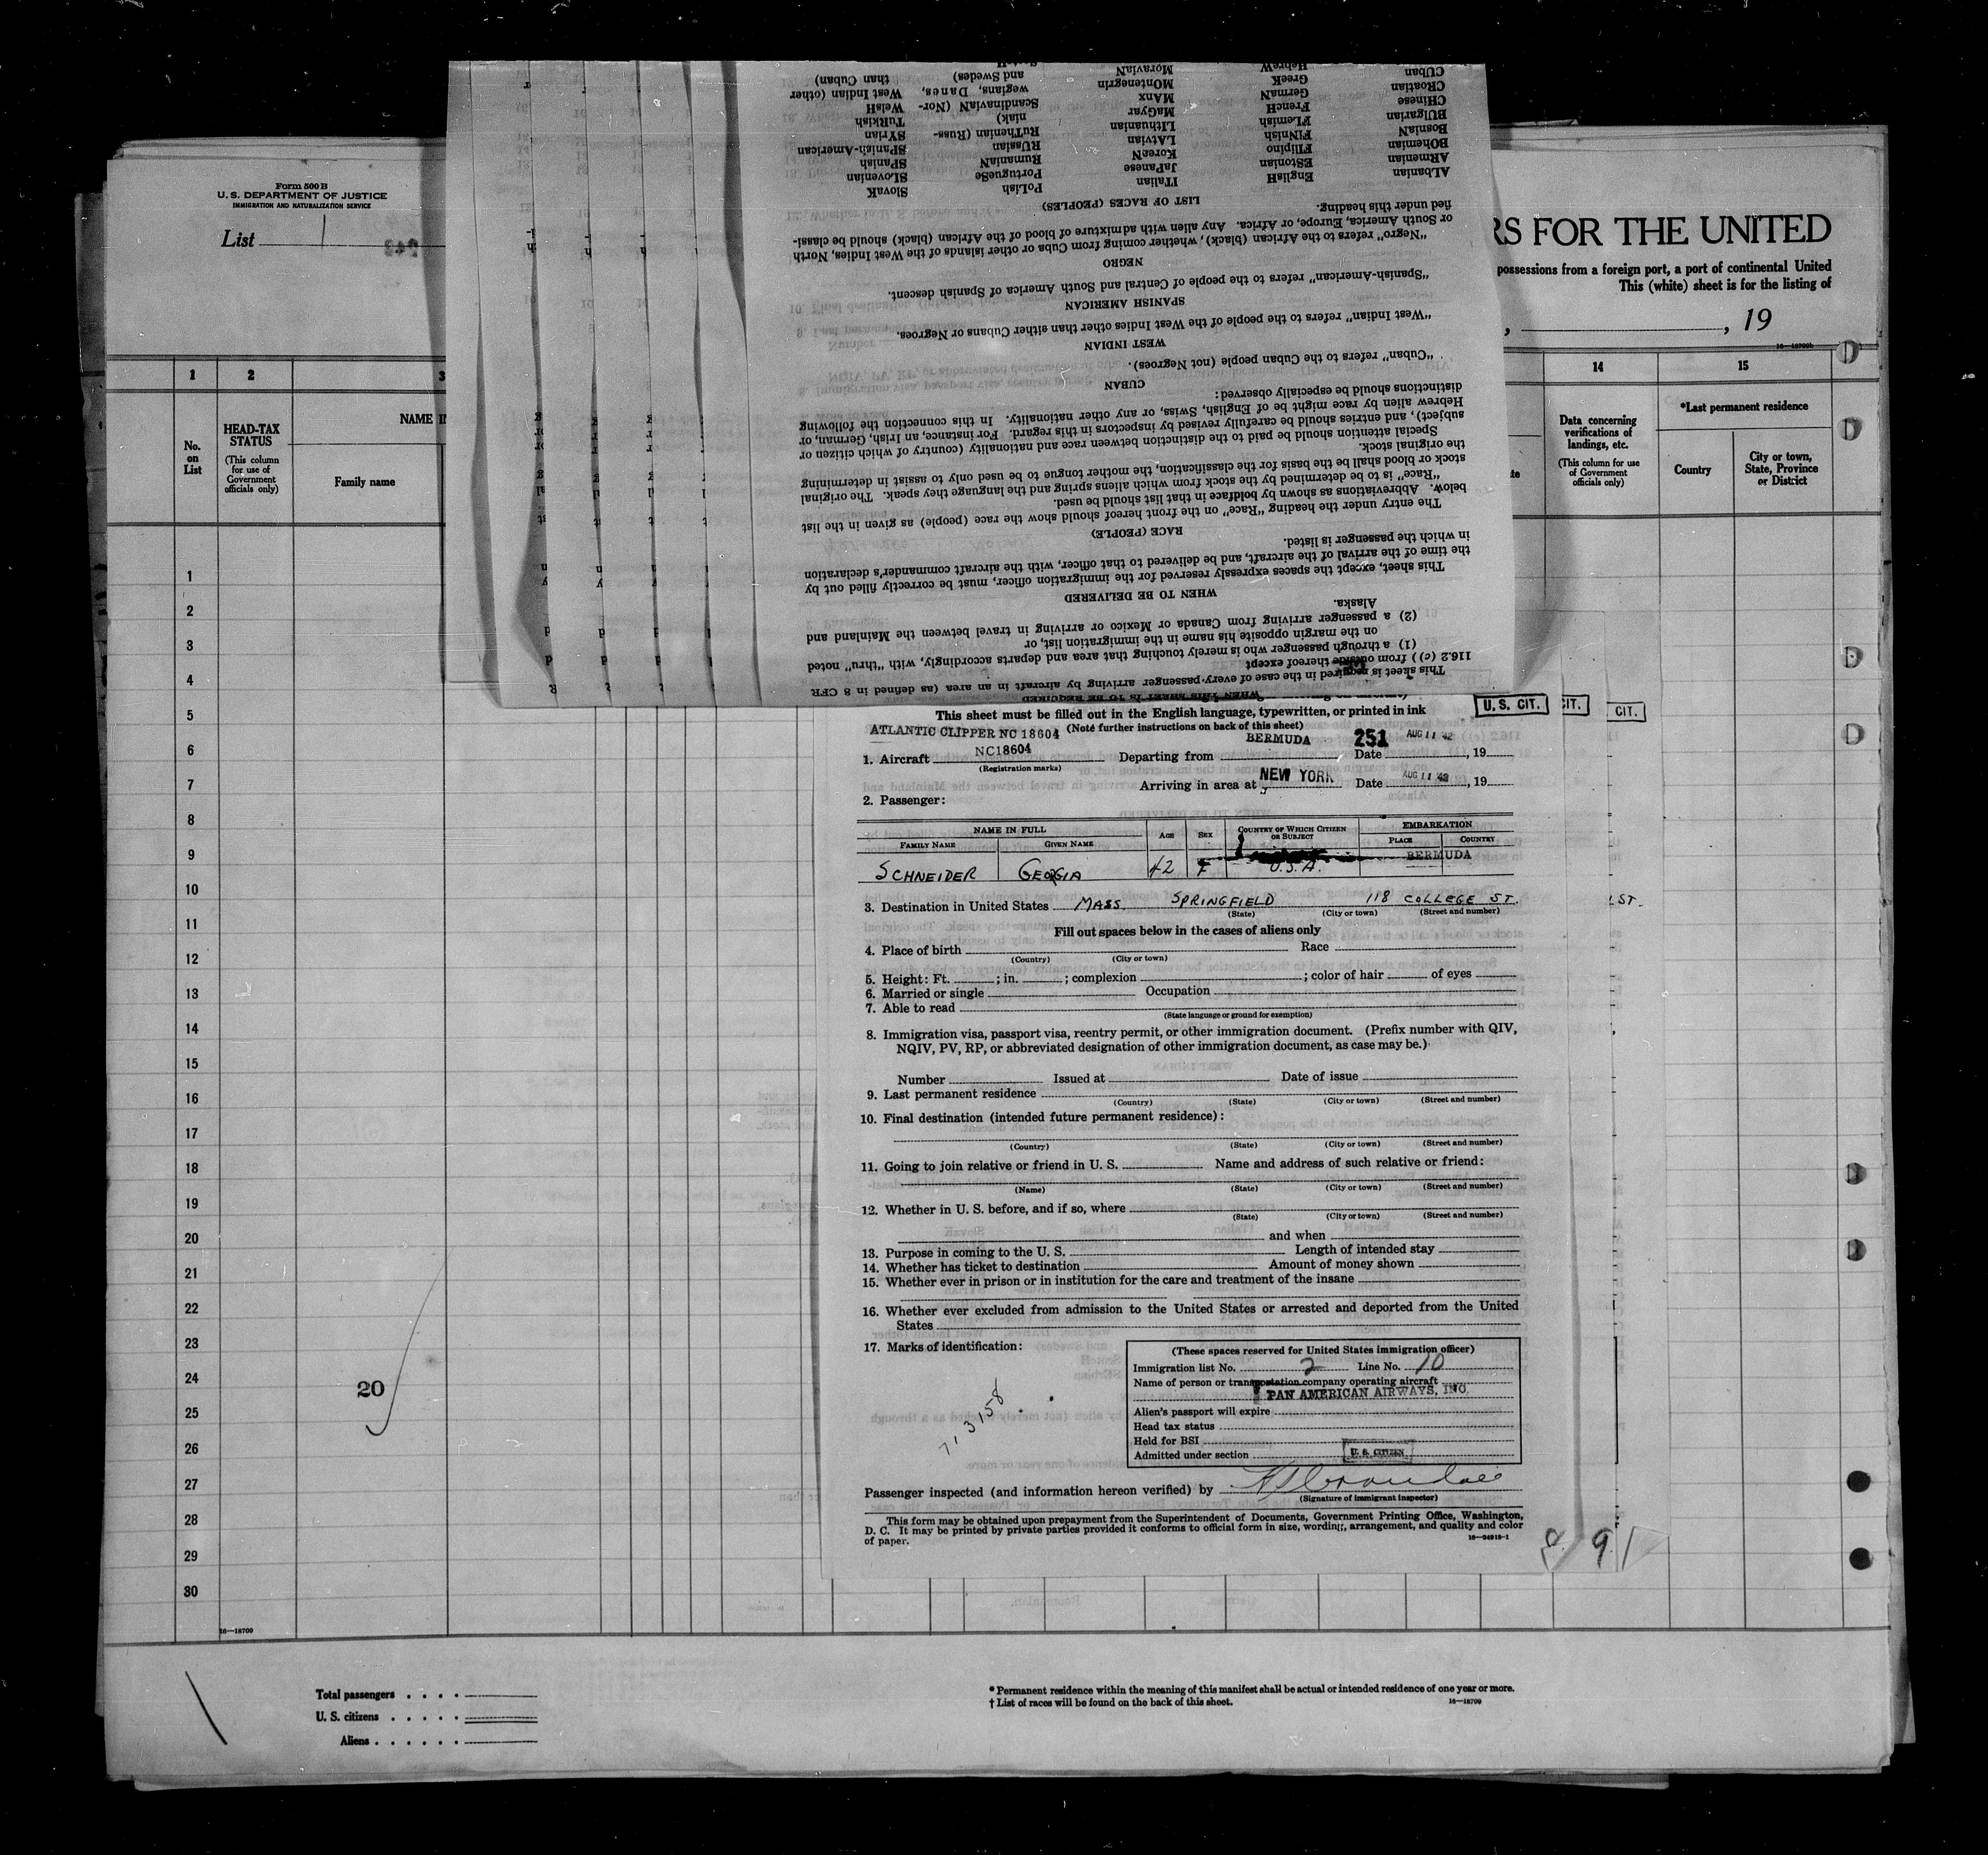 Form 500 B
U. S. DEPARTMENT OF JUSTICE
IMMIGRATION AND NATURALIZATION SERVICE
List 1
RS FOR THE UNITED
possessions from a foreign port, a port of continental United
This (white) sheet is for the listing of
, 19
16—18709
1 2 3 14 15
No. on List
HEAD-TAX STATUS
(This column for use of Government officials only)
NAME IN
Family name
Data concerning verifications of landings, etc.
(This column for use of Government officials only)
*Last permanent residence
Country
City or town, State, Province or District
1
2
3
4
5
6
7
8
9
10
11
12
13
14
15
16
17
18
19
20
21
22
23
24
25
26
27
28
29
30
20
16—18709
Total passengers . . . .
U. S. citizens . . . . .
Aliens . . . . . .
* Permanent residence within the meaning of this manifest shall be actual or intended residence of one year or more.
† List of races will be found on the back of this sheet.
16—18709
This sheet is required in the case of every passenger arriving by aircraft in an area (as defined in 8 CFR
116.2 (c)) from outside thereof except
(1) a through passenger who is merely touching that area and departs accordingly, with "thru" noted
on the margin opposite his name in the immigration list, or
(2) a passenger arriving from Canada or Mexico or arriving in travel between the Mainland and
Alaska.
WHEN TO BE DELIVERED
This sheet, except the spaces expressly reserved for the immigration officer, must be correctly filled out by
the time of the arrival of the aircraft, and be delivered to that officer, with the aircraft commander's declaration
in which the passenger is listed.
RACE (PEOPLE)
The entry under the heading "Race" on the front hereof should show the race (people) as given in the list
below. Abbreviations as shown by boldface in that list should be used.
"Race" is to be determined by the stock from which aliens spring and the language they speak. The original
stock or blood shall be the basis for the classification, the mother tongue to be used only to assist in determining
the original stock.
Special attention should be paid to the distinction between race and nationality (country of which citizen or
subject), and entries should be carefully revised by inspectors in this regard. For instance, an Irish, German, or
Hebrew alien by race might be of English, Swiss, or any other nationality. In this connection the following
distinctions should be especially observed:
CUBAN
"Cuban" refers to the Cuban people (not Negroes).
WEST INDIAN
"West Indian" refers to the people of the West Indies other than either Cubans or Negroes.
SPANISH AMERICAN
"Spanish-American" refers to the people of Central and South America of Spanish descent.
NEGRO
"Negro" refers to the African (black), whether coming from Cuba or other islands of the West Indies, North
or South America, Europe, or Africa. Any alien with admixture of blood of the African (black) should be classi-
fied under this heading.
LIST OF RACES (PEOPLES)
ALbanian EnglisH ITalian PoLish SlovaK
ARmenian EStonian JaPanese PortugueSe SLovenian
BOhemian FIlipino KoreaN RumaniaN SPanish
BosniaN FINnish LAtvian RUssian SPanish-American
BUlgarian FLemish LIthuanian RuThenian (Russ- SYrian
CHinese FrencH MaGyar niak) TurKish
CRoatian GermaN MAnx ScandinaviaN (Nor- WelsH
CUban GreeK MOntenegrin wegians, Danes, West Indian (other
HebreW MoraviaN and Swedes) than Cuban)
This sheet must be filled out in the English language, typewritten, or printed in ink
(Note further instructions on back of this sheet)
U. S. CIT.
CIT.
CIT.
ATLANTIC CLIPPER NC 18604
BERMUDA 251 AUG 11 '42
1. Aircraft NC18604 Departing from Date , 19
(Registration marks)
Arriving in area at NEW YORK Date AUG 11 '42, 19
2. Passenger:
NAME IN FULL
FAMILY NAME GIVEN NAME AGE SEX COUNTRY OF WHICH CITIZEN OR SUBJECT EMBARKATION PLACE COUNTRY
SCHNEIDER GEORGIA 42 F U.S.A. BERMUDA
3. Destination in United States MASS. SPRINGFIELD 118 COLLEGE ST.
ST.
(State) (City or town) (Street and number)
Fill out spaces below in the cases of aliens only
4. Place of birth Race
(Country) (City or town)
5. Height: Ft. ; in. ; complexion ; color of hair of eyes
6. Married or single Occupation
7. Able to read
(State language or ground for exemption)
8. Immigration visa, passport visa, reentry permit, or other immigration document. (Prefix number with QIV,
NQIV, PV, RP, or abbreviated designation of other immigration document, as case may be.)
Number Issued at Date of issue
9. Last permanent residence
(Country) (State) (City or town) (Street and number)
10. Final destination (intended future permanent residence):
(Country) (State) (City or town) (Street and number)
11. Going to join relative or friend in U. S. Name and address of such relative or friend:
(Name) (State) (City or town) (Street and number)
12. Whether in U. S. before, and if so, where
(State) (City or town) (Street and number)
and when
13. Purpose in coming to the U. S. Length of intended stay
14. Whether has ticket to destination Amount of money shown
15. Whether ever in prison or in institution for the care and treatment of the insane
16. Whether ever excluded from admission to the United States or arrested and deported from the United
States
17. Marks of identification:
713158
(These spaces reserved for United States immigration officer)
Immigration list No. 2 Line No. 10
Name of person or transportation company operating aircraft
PAN AMERICAN AIRWAYS, INC.
Alien's passport will expire
Head tax status
Held for BSI
Admitted under section U. S. CITIZEN
Passenger inspected (and information hereon verified) by
(Signature of immigrant inspector)
This form may be obtained upon prepayment from the Superintendent of Documents, Government Printing Office, Washington,
D. C. It may be printed by private parties provided it conforms to official form in size, wording, arrangement, and quality and color
of paper.
16—24918-1
9